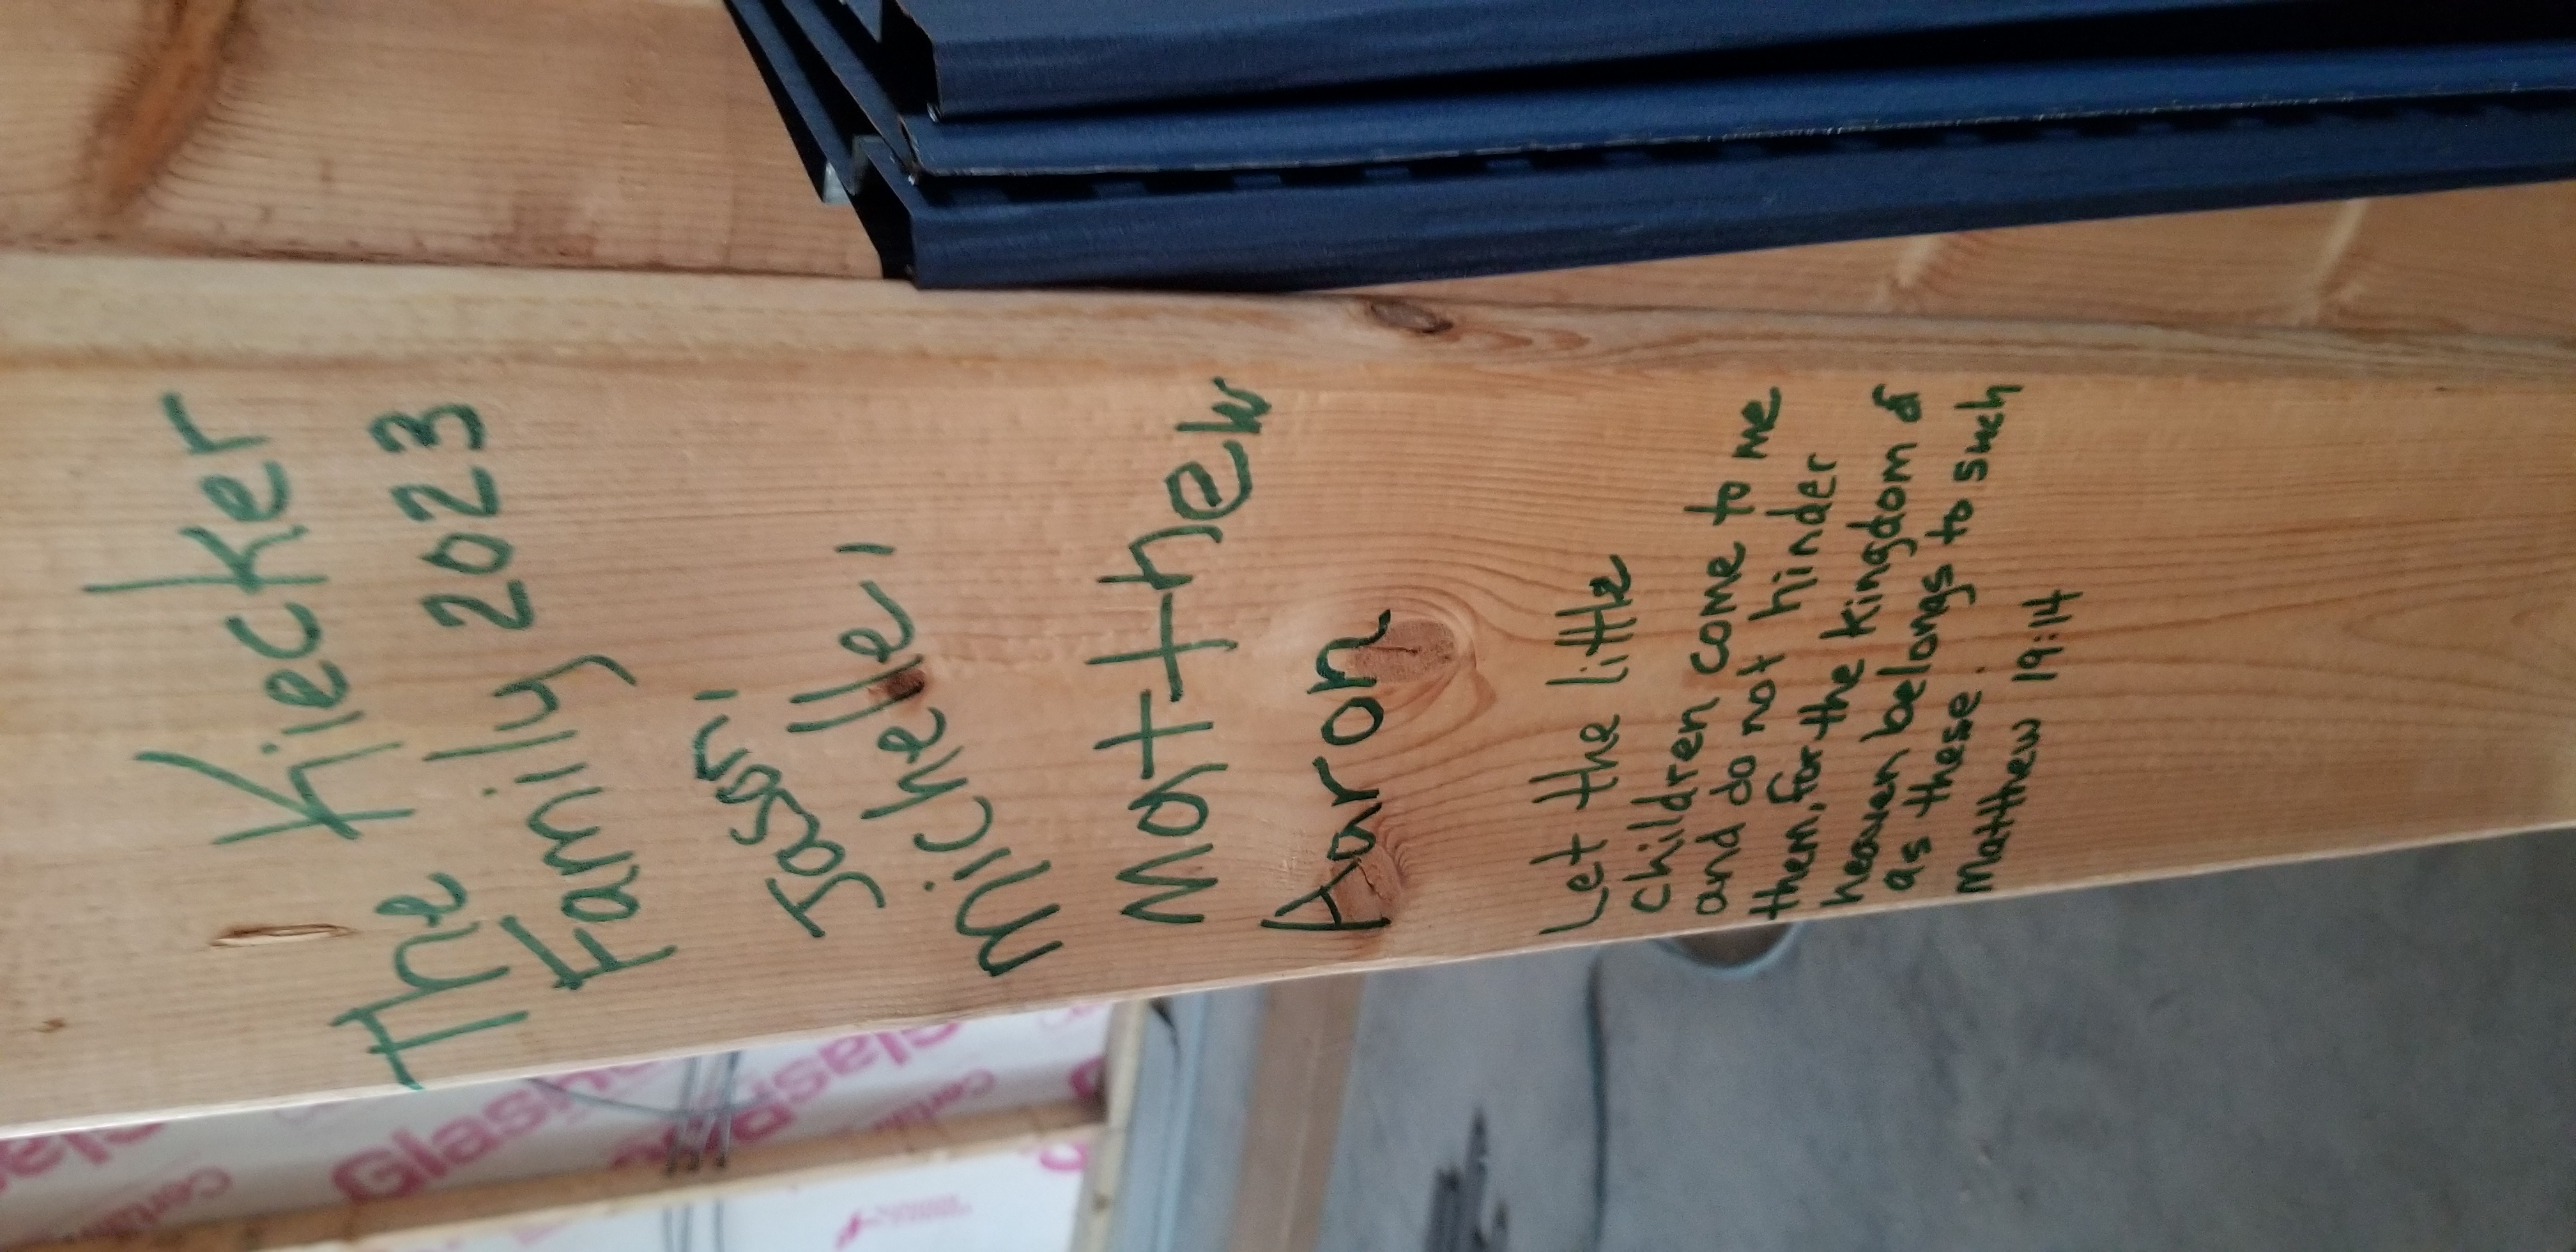 The Kiecker
Family 2023
Jason,
Michelle,
Matthew
Aaron
Let the little
children come to me
and do not hinder
them, for the kingdom of
heaven belongs to such
as these.
Matthew 19:14